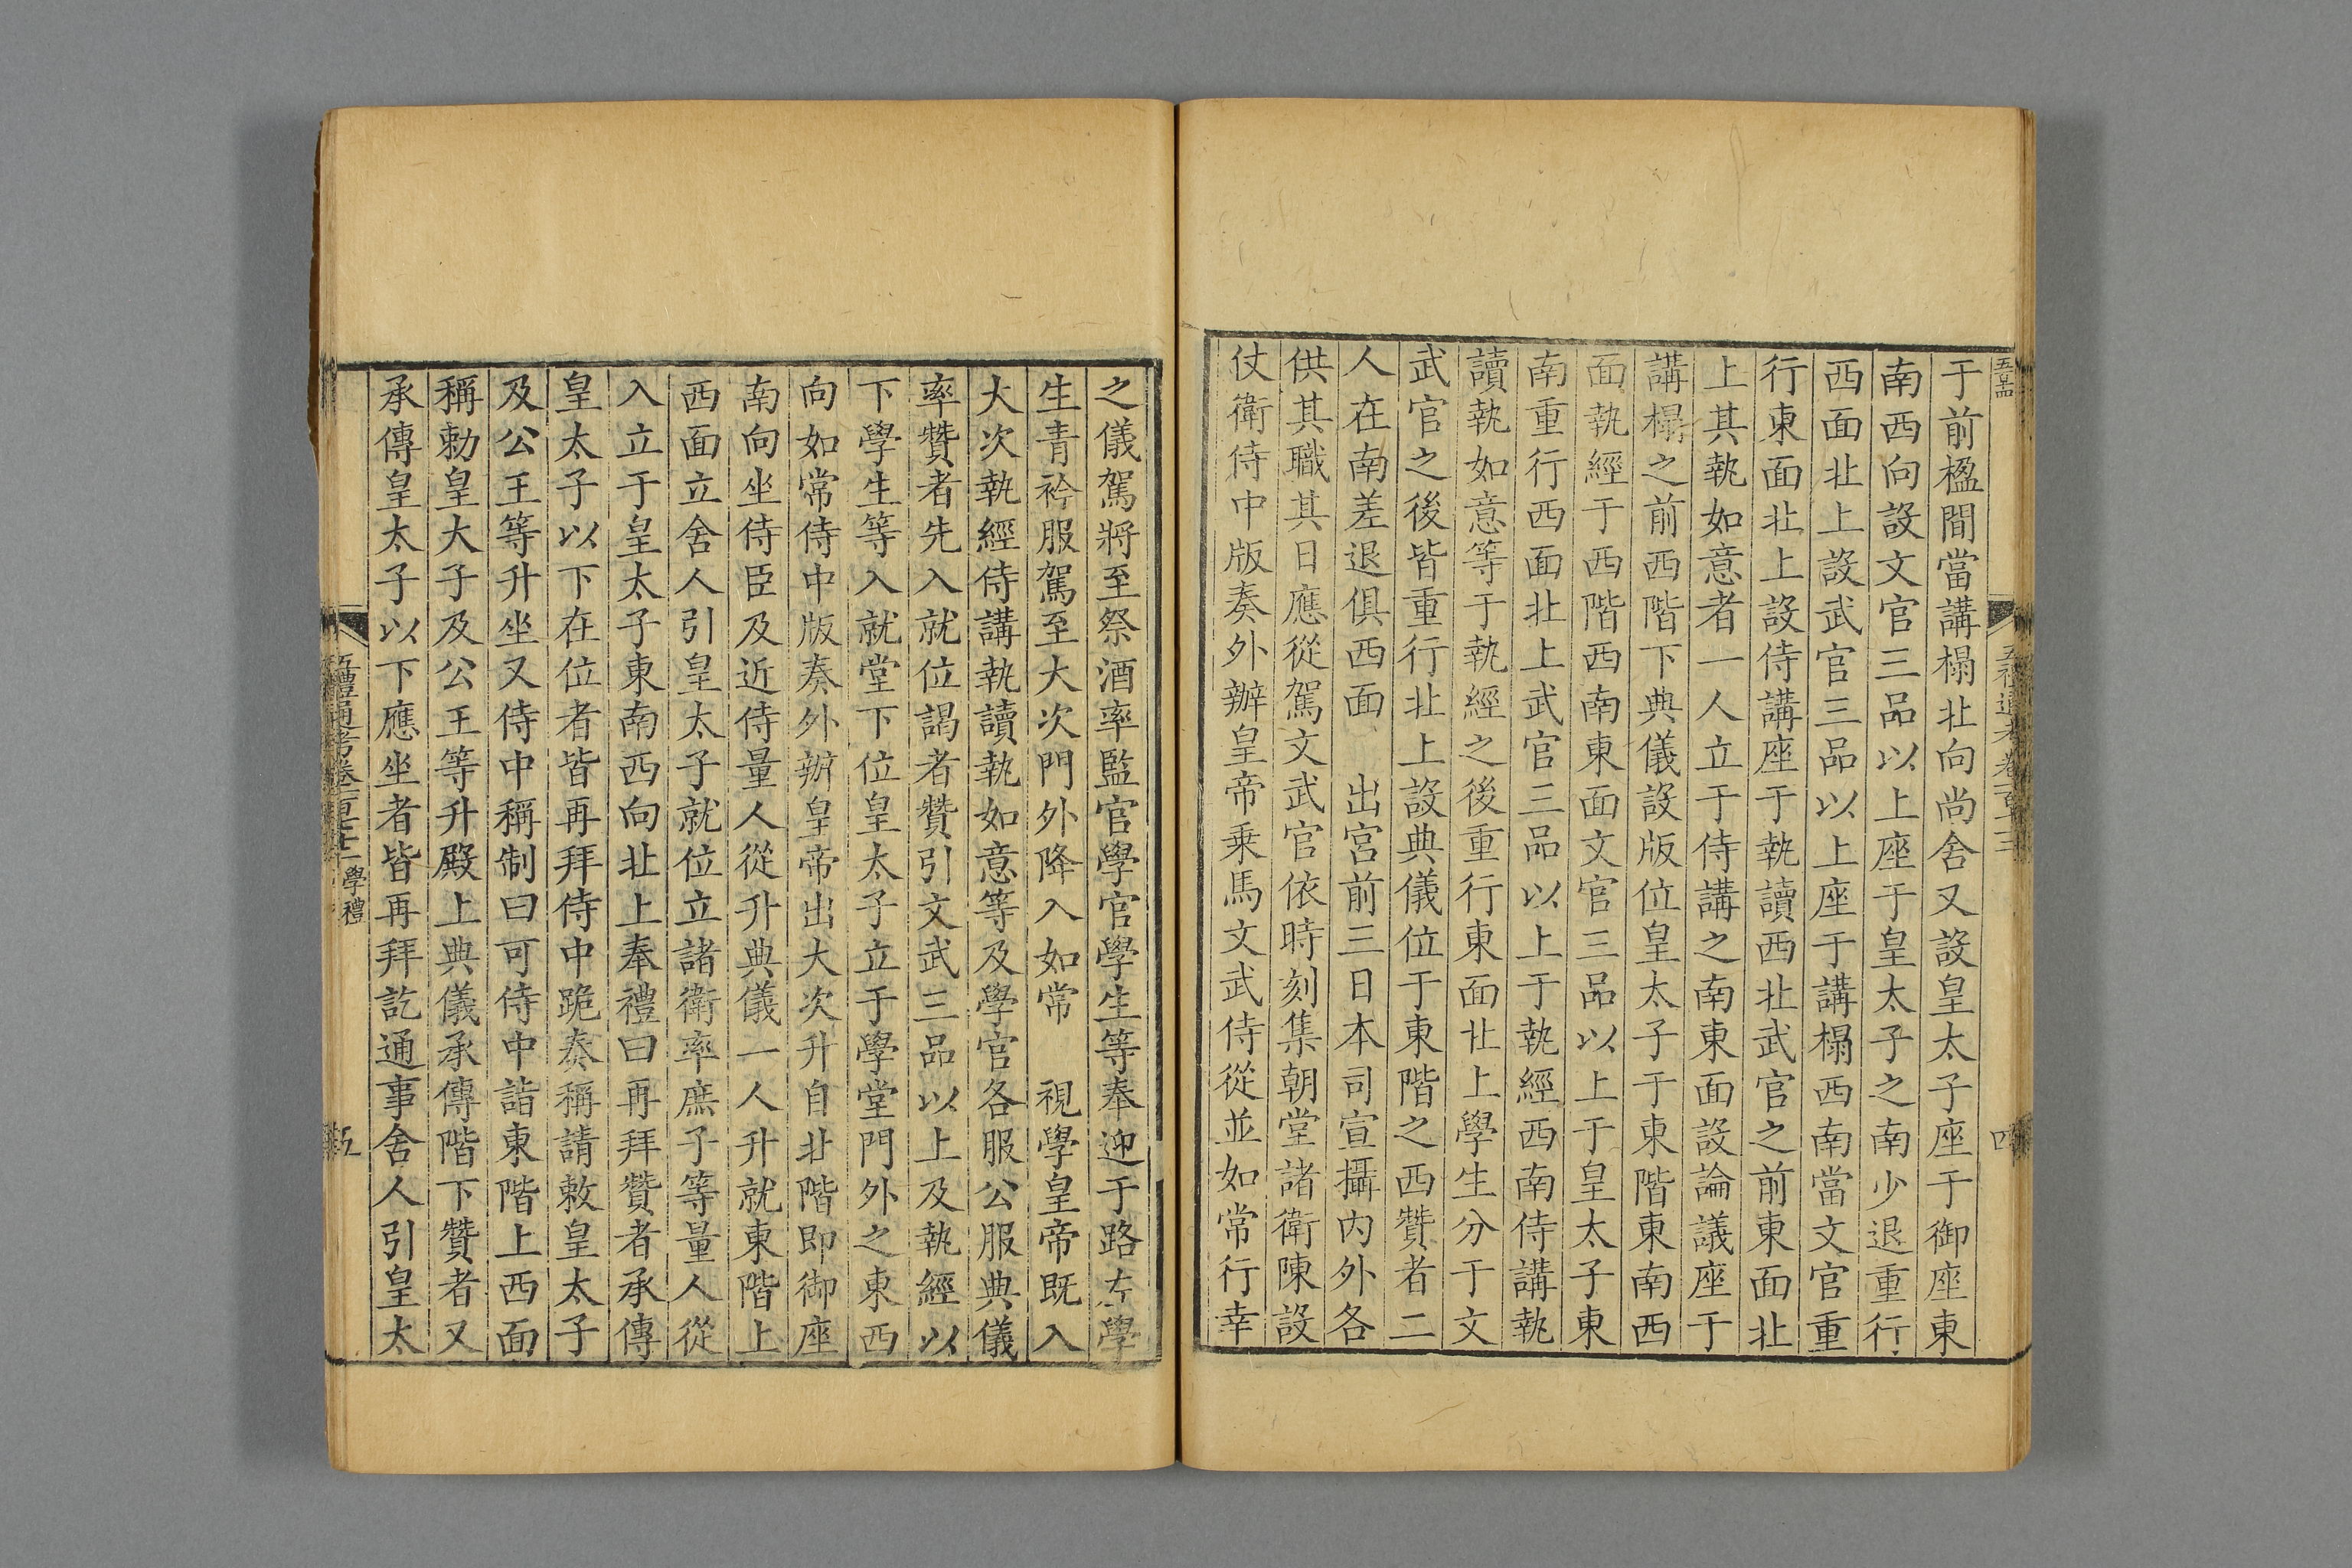 于前楹間當講榻北向尚舍又設皇太子座于御座東
南西向設文官三品以上座于皇太子之南少退重行
西面北上設武官三品以上座于講榻西南當文官重
行東面北上設侍講座于執讀西北武官之前東面北
上其執如意者一人立于侍講之南東面設論議座于
講榻之前西階下典儀設版位皇太子于東階東南西
面執經于西階西南東面文官三品以上于皇太子東
南重行西面北上武官三品以上于執經西南侍講執
讀執如意等于執經之後重行東面北上學生分于文
武官之後皆重行北上設典儀位于東階之西贊者二
人在南差退俱西面　出宮前三日本司宣攝內外各
供其職其日應從駕文武官依時刻集朝堂諸衛陳設
仗衛侍中版奏外辦皇帝乗馬文武侍從並如常行幸
四
之儀駕將至祭酒率監官學官學生等奉迎于路左學
生青衿服駕至大次門外降入如常　視學皇帝既入
大次執經侍講執讀執如意等及學官各服公服典儀
率贊者先入就位謁者贊引文武三品以上及執經以
下學生等入就堂下位皇太子立于學堂門外之東西
向如常侍中版奏外辦皇帝出大次升自北階即御座
南向坐侍臣及近侍量人從升典儀一人升就東階上
西面立舍人引皇太子就位立諸衛率庶子等量人從
入立于皇太子東南西向北上奉禮曰再拜贊者承傳
皇太子以下在位者皆再拜侍中跪奏稱請敕皇太子
及公王等升坐又侍中稱制曰可侍中詣東階上西面
稱勅皇大子及公王等升殿上典儀承傳階下贊者又
承傳皇太子以下應坐者皆再拜訖通事舍人引皇太
學禮
五